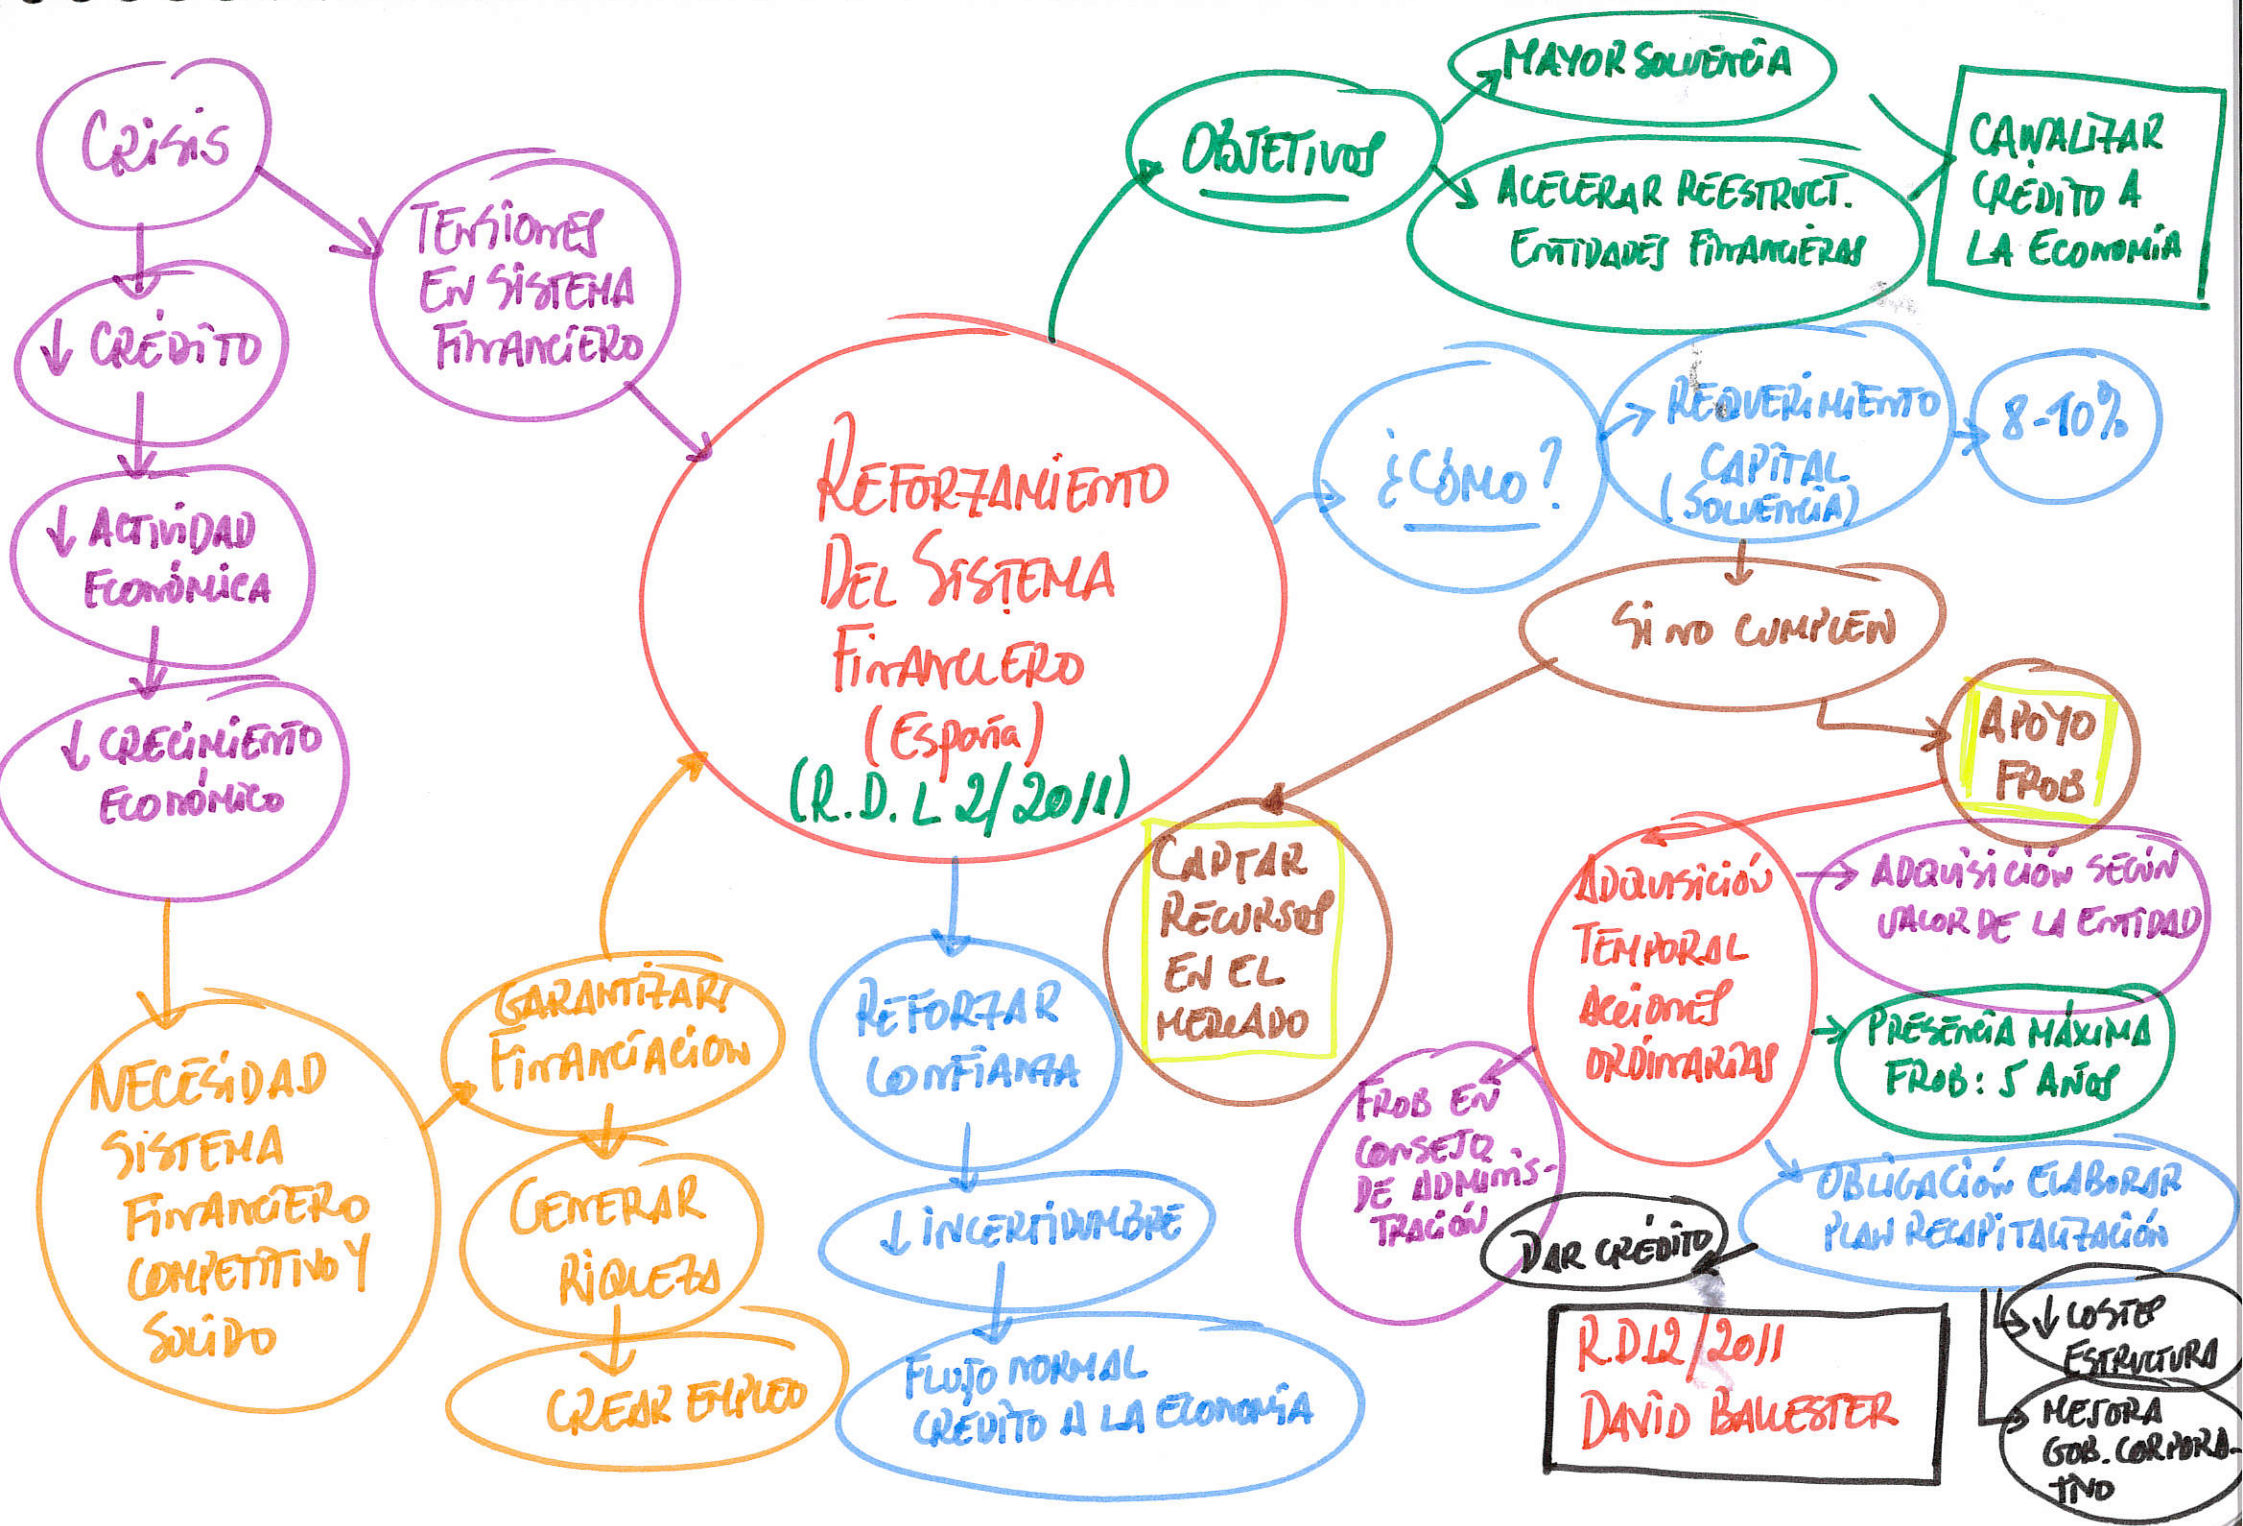 CRISIS
↓ CRÉDITO
↓ ACTIVIDAD
ECONÓMICA
↓ CRECIMIENTO
ECONÓMICO
NECESIDAD
SISTEMA
FINANCIERO
COMPETITIVO Y
SOLIDO
TENSIONES
EN SISTEMA
FINANCIERO
GARANTIZAR
FINANCIACION
GENERAR
RIQUEZA
CREAR EMPLEO
REFORZAMIENTO
DEL SISTEMA
FINANCIERO
(España)
(R.D.L 2/2011)
REFORZAR
CONFIANZA
↓ INCERTIDUMBRE
FLUJO NORMAL
CRÉDITO A LA ECONOMÍA
OBJETIVOS
MAYOR SOLVENCIA
ACELERAR REESTRUCT.
ENTIDADES FINANCIERAS
CANALIZAR
CRÉDITO A
LA ECONOMÍA
¿CÓMO?
REQUERIMIENTO
CAPITAL
(SOLVENCIA)
8-10%
SI NO CUMPLEN
CAPTAR
RECURSOS
EN EL
MERCADO
APOYO
FROB
ADQUISICIÓN
TEMPORAL
ACCIONES
ORDINARIAS
ADQUISICIÓN SEGÚN
VALOR DE LA ENTIDAD
PRESENCIA MÁXIMA
FROB: 5 AÑOS
FROB EN
CONSEJO
DE ADMINIS-
TRACIÓN
OBLIGACIÓN ELABORAR
PLAN RECAPITALIZACIÓN
DAR CRÉDITO
↓ COSTES
ESTRUCTURA
MEJORA
GOB. CORPORA-
TIVO
R.DL2/2011
DAVID BALLESTER